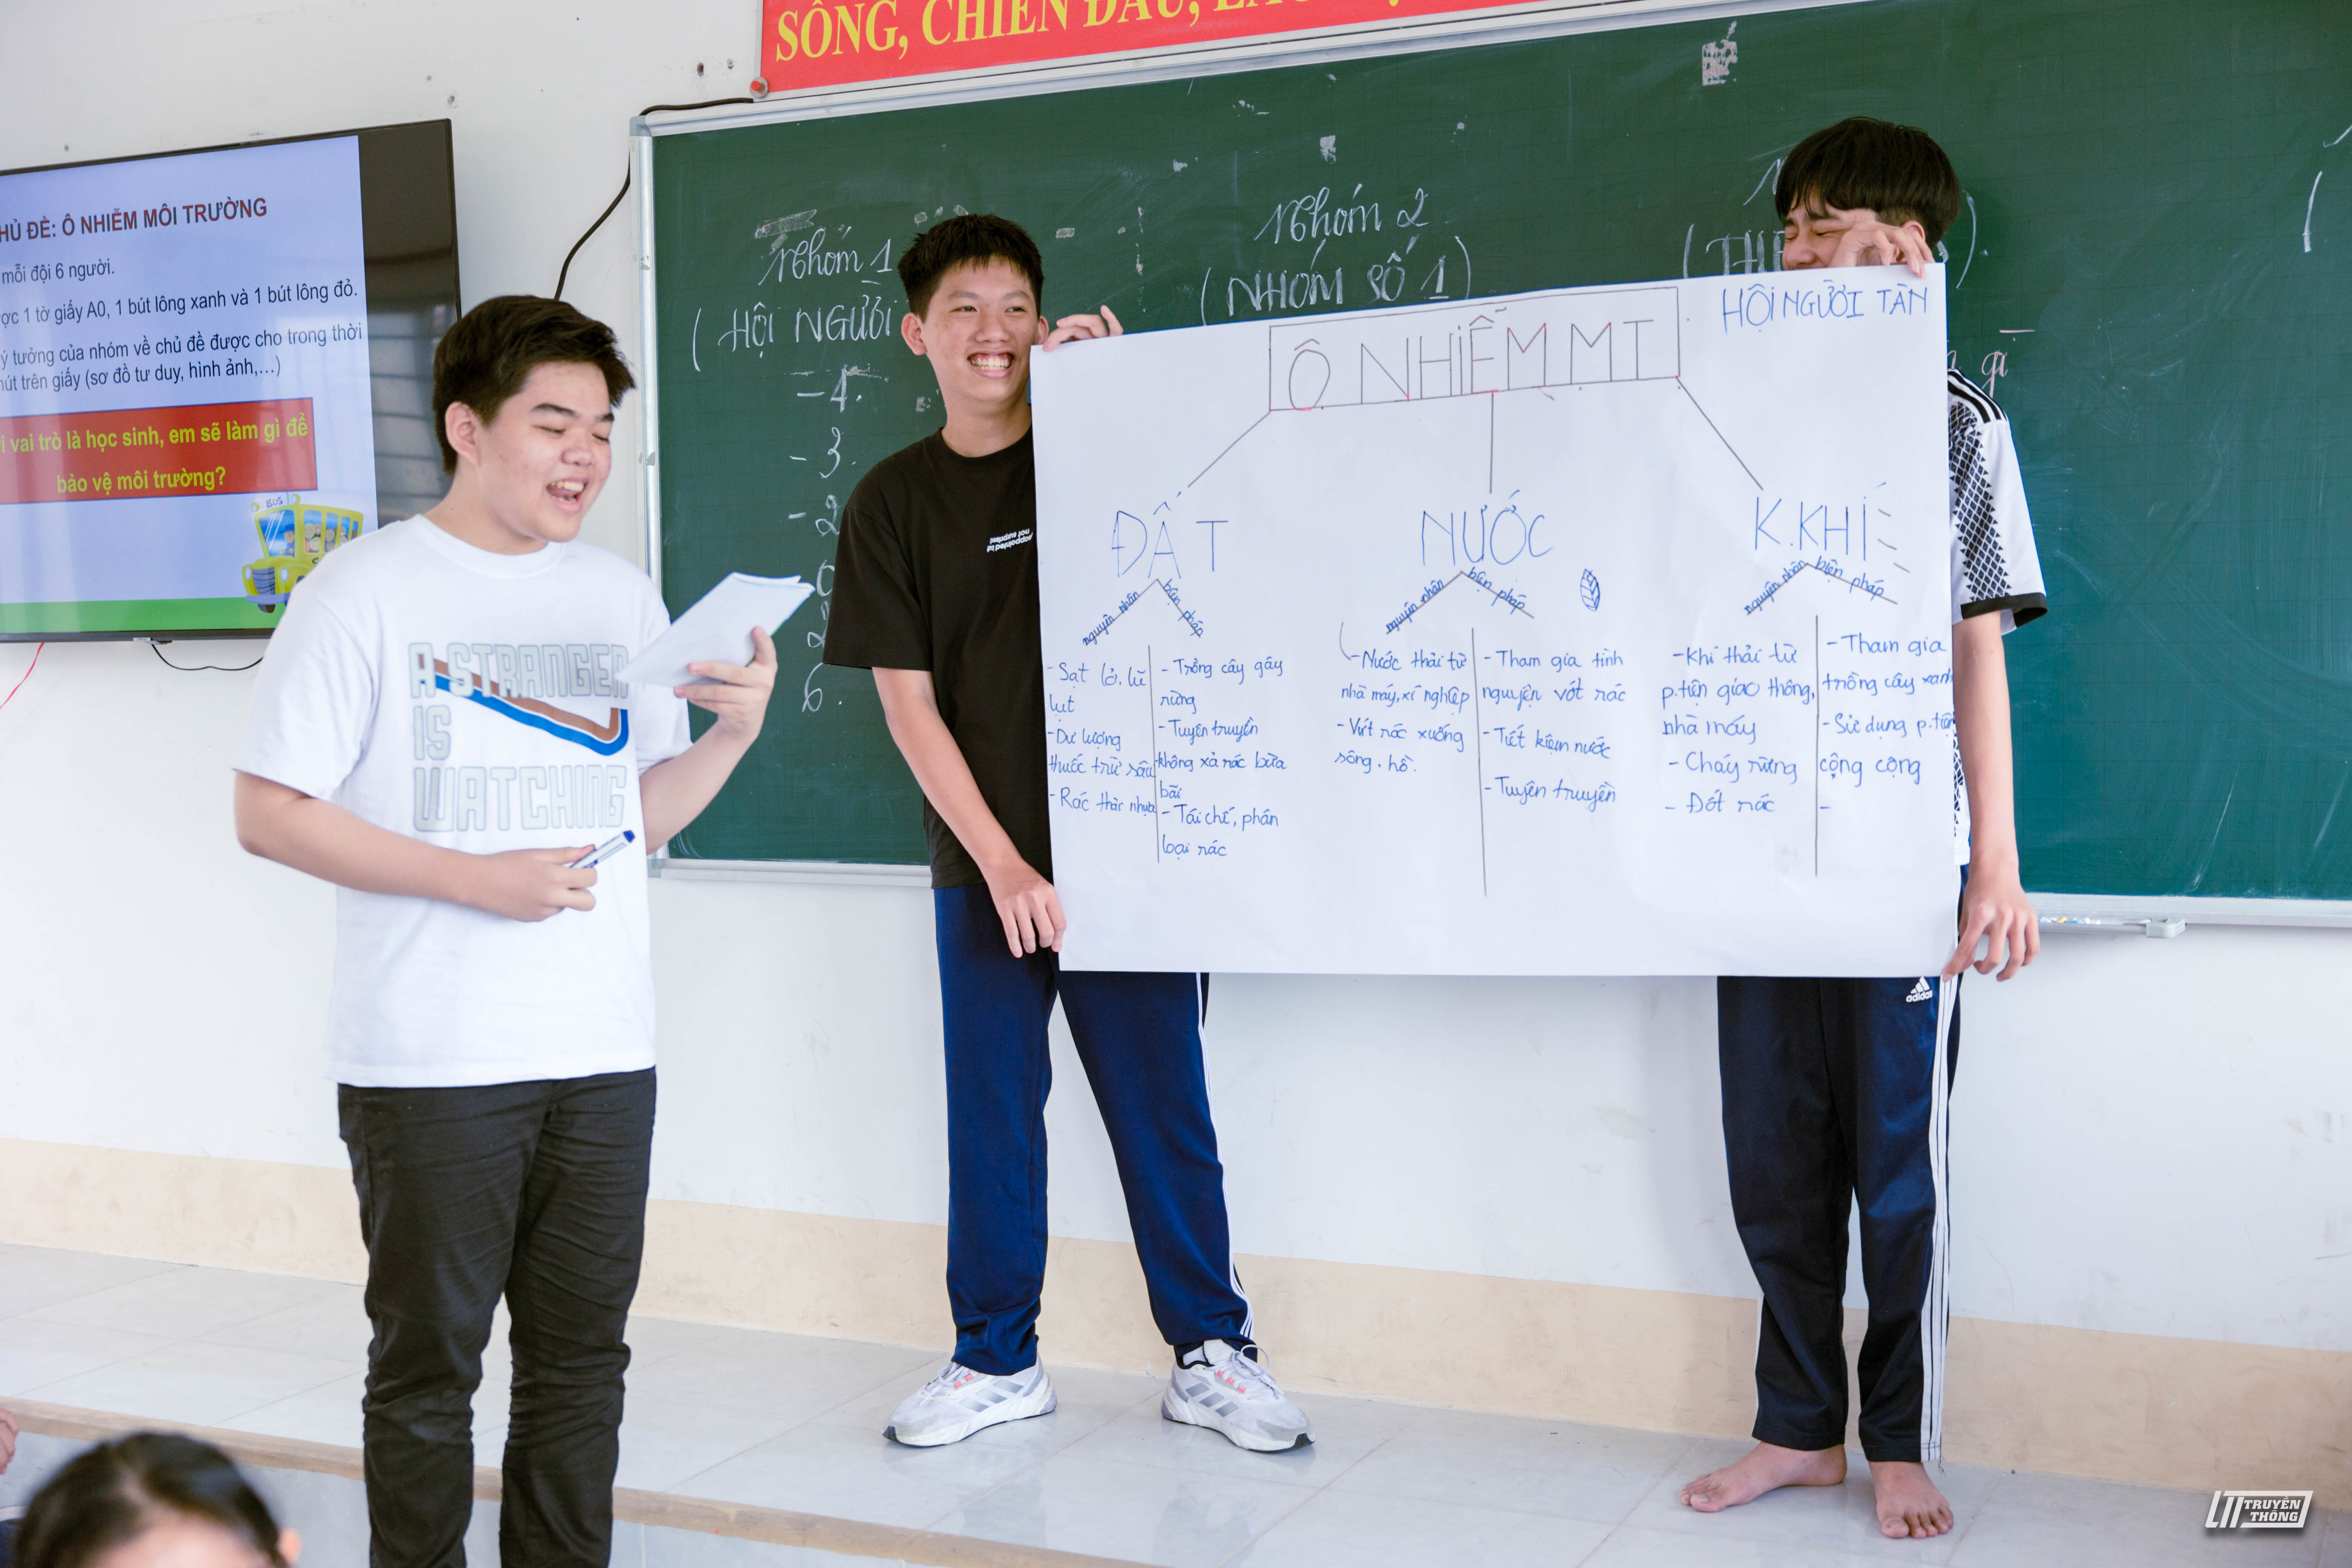 SỐNG, CHIẾN ĐẤU,
HỦ ĐỀ: Ô NHIỄM MÔI TRƯỜNG
mỗi đội 6 người.
ợc 1 tờ giấy A0, 1 bút lông xanh và 1 bút lông đỏ.
ý tưởng của nhóm về chủ đề được cho trong thời
hút trên giấy (sơ đồ tư duy, hình ảnh,...)
i vai trò là học sinh, em sẽ làm gì để
bảo vệ môi trường?
BUS
Nhóm 1
(HỘI NGƯỜI
- 4.
- 3.
- 2
6
Nhóm 2
(NHÓM SỐ 1)
gì
A STRANGER
IS
WATCHING
HỘI NGƯỜI TÀN
Ô NHIỄM MT
ĐẤT
nguyên nhân
biện pháp
- Sạt lở, lũ
lụt
- Dư lượng
thuốc trừ sâu
- Rác thải nhựa
- Trồng cây gây
rừng
- Tuyên truyền
không xả rác bừa
bãi
- Tái chế, phân
loại rác
NƯỚC
nguyên nhân
biện pháp
- Nước thải từ
nhà máy, xí nghiệp
- Vứt rác xuống
sông, hồ.
- Tham gia tình
nguyện vớt rác
- Tiết kiệm nước
- Tuyên truyền
K.KHÍ
nguyên nhân
biện pháp
- Khí thải từ
p.tiện giao thông,
nhà máy
- Cháy rừng
- Đốt rác
- Tham gia
trồng cây xanh
- Sử dụng p.tiện
công cộng
-
adidas
TRUYỀN
THÔNG